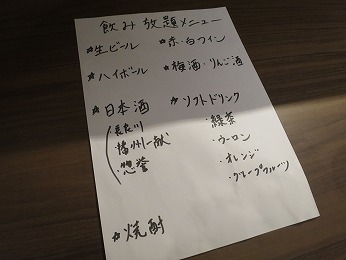 飲み放題メニュー
☆生ビール
☆ハイボール
☆日本酒
長良川
播州一献
惣誉
☆焼酎
☆赤・白ワイン
☆梅酒・りんご酒
☆ソフトドリンク
・緑茶
・ウーロン
・オレンジ
・グレープフルーツ